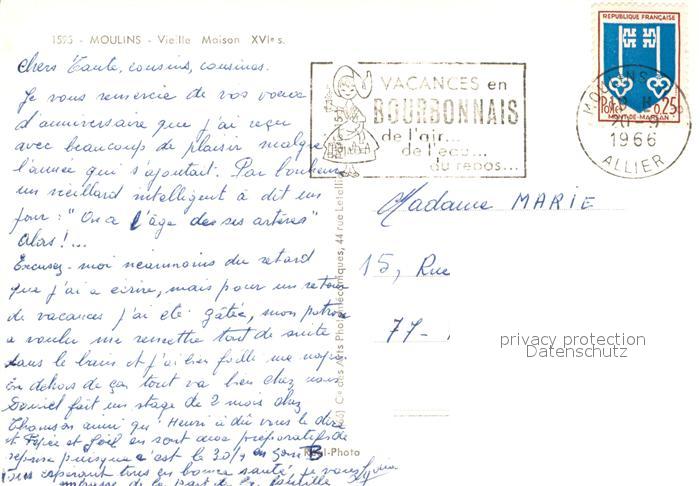 1595 - MOULINS - Vieille Maison XVIe s.
chers Tante, cousins, cousines.
Je vous remercie de vos voeux
d'anniversaire que j'ai reçu
avec beaucoup de plaisir malgré
l'année qui s'ajoutait. Par bonheur
un vieillard intelligent à dit un
jour : "On a l'âge de ses artères"
Alors !...
Excusez-moi néanmoins du retard
que j'ai à écrire, mais pour un retour
de vacances j'ai été gâtée, mon patron
a voulu me remettre tout de suite
dans le bain et j'ai bien failli me noyer
En dehors de ça tout va bien chez nous
Daniel fait un stage de 2 mois chez
Thomson ainsi qu'Henri a dû vous le dire
et Joël en sont aux préparatifs de
reprise puisque c'est le 30/9
espérant tous en bonne santé, je vous
de la part de la famille
VACANCES en
BOURBONNAIS
de l'air...
de l'eau...
du repos...
REPUBLIQUE FRANÇAISE
Postes 0,25
MONT-DE-MARSAN
MOULINS
20-9
1966
ALLIER
Madame MARIE
15, Rue
77-
Cie des Arts Photomécaniques, 44 rue Letellier
Real-Photo
privacy protection
Datenschutz